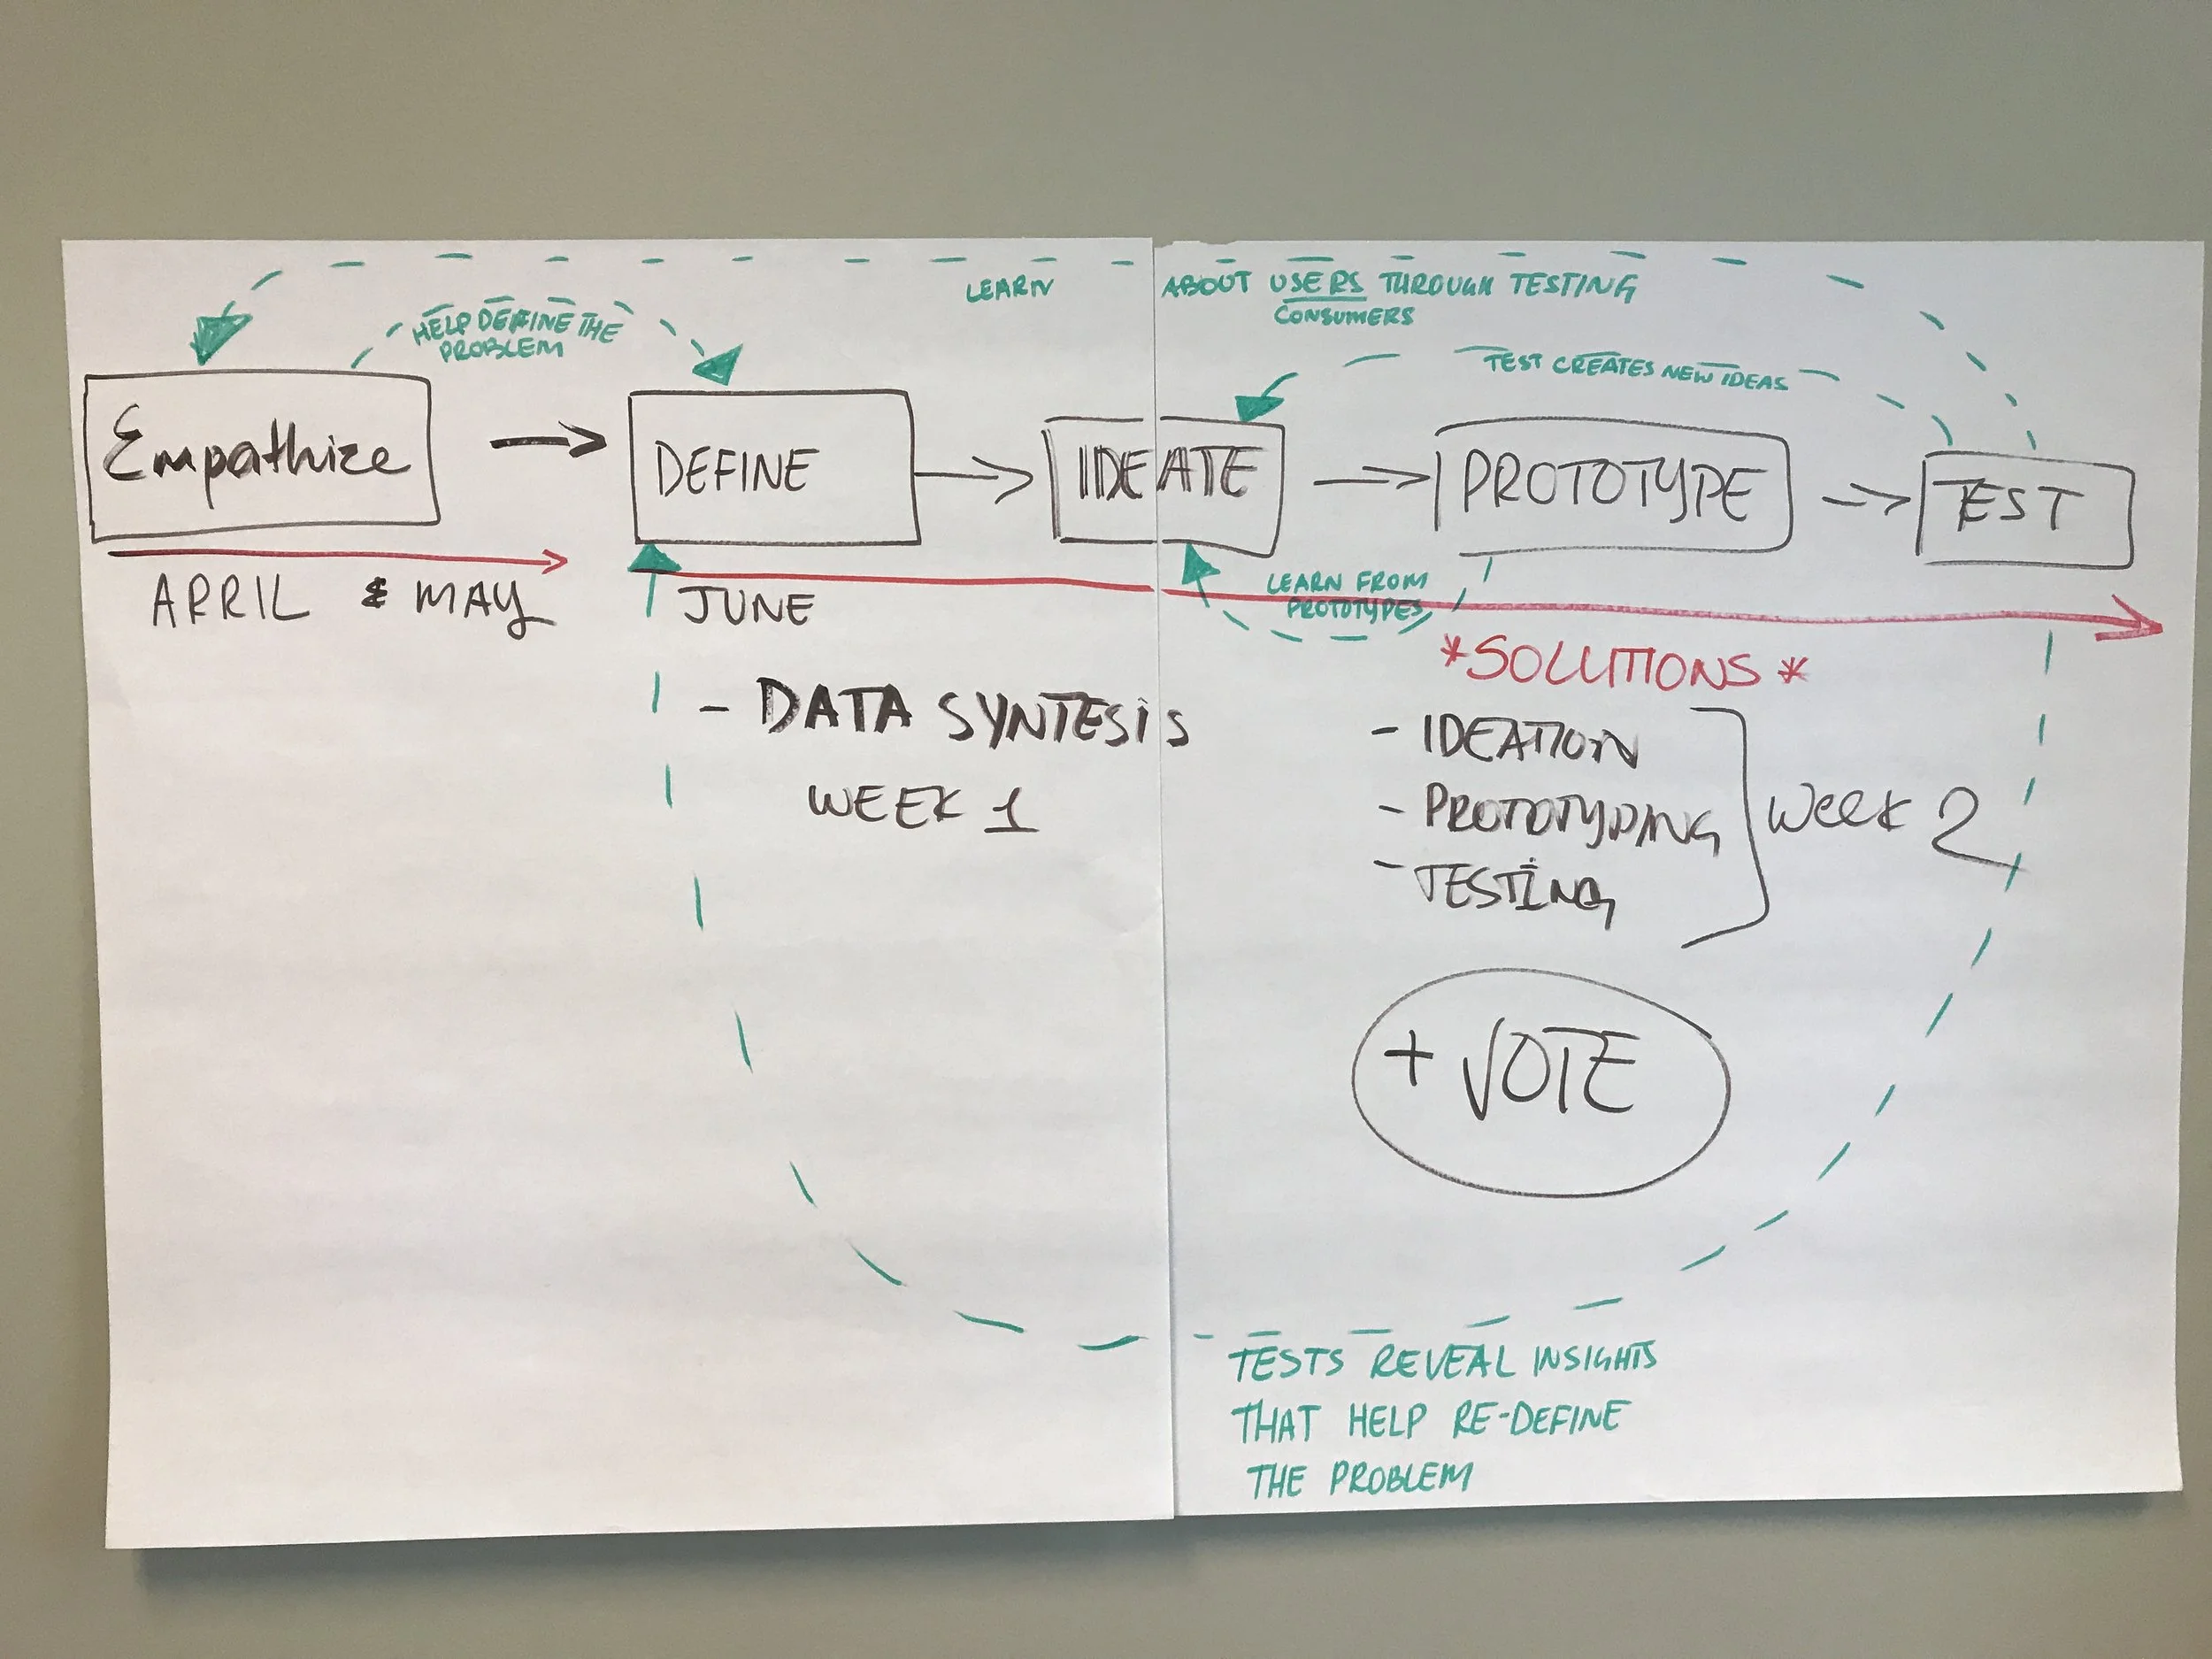 LEARN ABOUT USERS THROUGH TESTING
CONSUMERS
HELP DEFINE THE
PROBLEM
TEST CREATES NEW IDEAS
Empathize
DEFINE
IDEATE
PROTOTYPE
TEST
APRIL & MAY
JUNE
LEARN FROM
PROTOTYPES
*SOLUTIONS*
- DATA SYNTESIS
WEEK 1
- IDEATION
- PROTOTYPING
- TESTING
Week 2
+ VOTE
TESTS REVEAL INSIGHTS
THAT HELP RE-DEFINE
THE PROBLEM